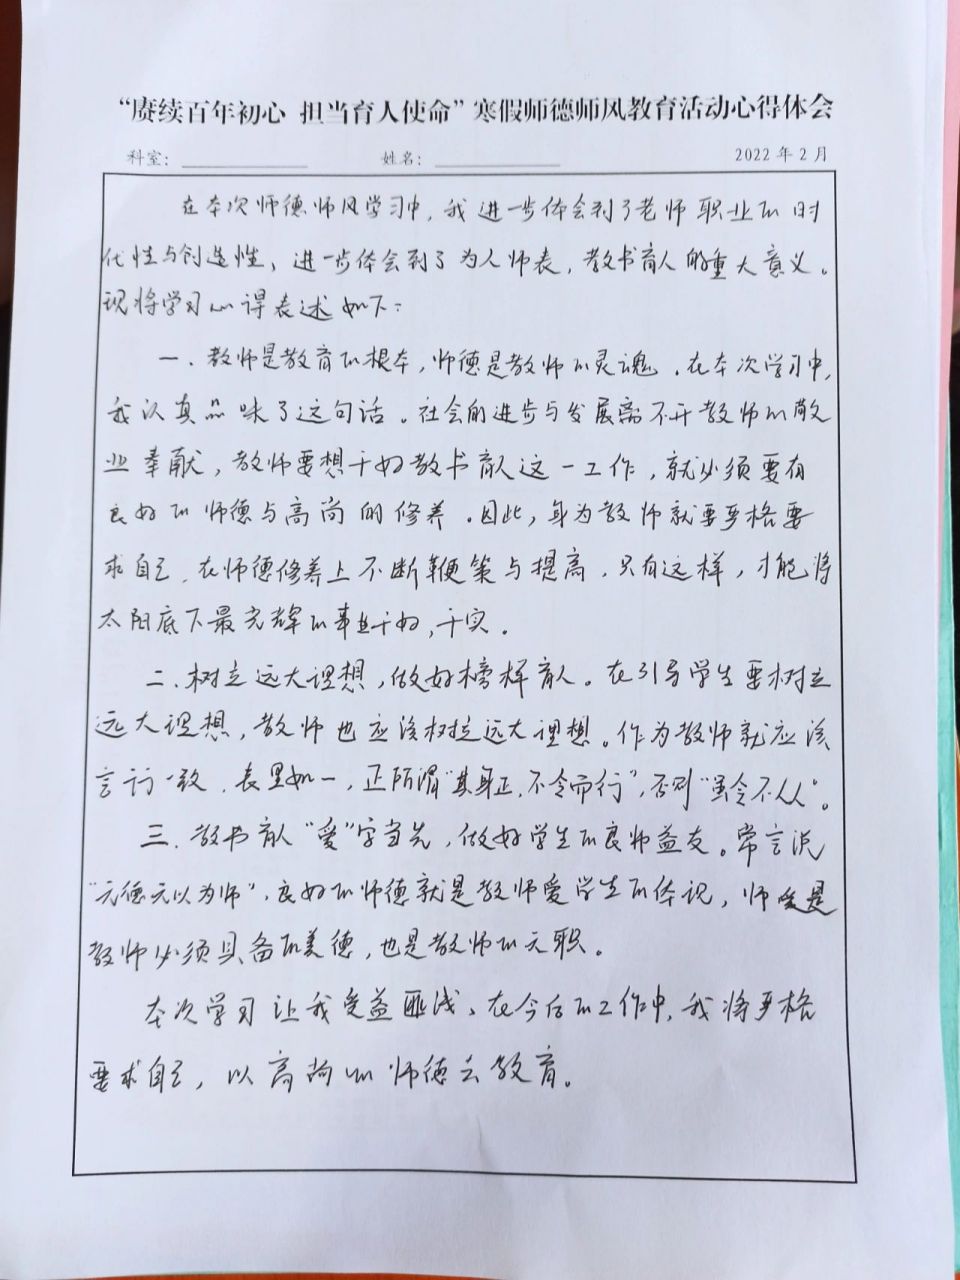 “赓续百年初心 担当育人使命”寒假师德师风教育活动心得体会
科室： 姓名： 2022年2月
在本次师德师风学习中，我进一步体会到了老师职业的时
代性与创造性，进一步体会到了为人师表，教书育人的重大意义。
现将学习心得表述如下：
一、教师是教育的根本，师德是教师的灵魂。在本次学习中，
我认真品味了这句话。社会的进步与发展离不开教师的敬
业奉献，教师要想干好教书育人这一工作，就必须要有
良好的师德与高尚的修养。因此，身为教师就要严格要
求自己，在师德修养上不断鞭策与提高，只有这样，才能将
太阳底下最光辉的事业干好，干实。
二、树立远大理想，做好榜样育人。在引导学生要树立
远大理想，教师也应该树立远大理想。作为教师就应该
言行一致，表里如一，正所谓“其身正，不令而行”，否则“虽令不从”。
三、教书育人“爱”字当先，做好学生的良师益友。常言说
“无德无以为师”，良好的师德就是教师爱学生的体现，师爱是
教师必须具备的美德，也是教师的天职。
本次学习让我受益匪浅，在今后的工作中，我将严格
要求自己，以高尚的师德去教育。